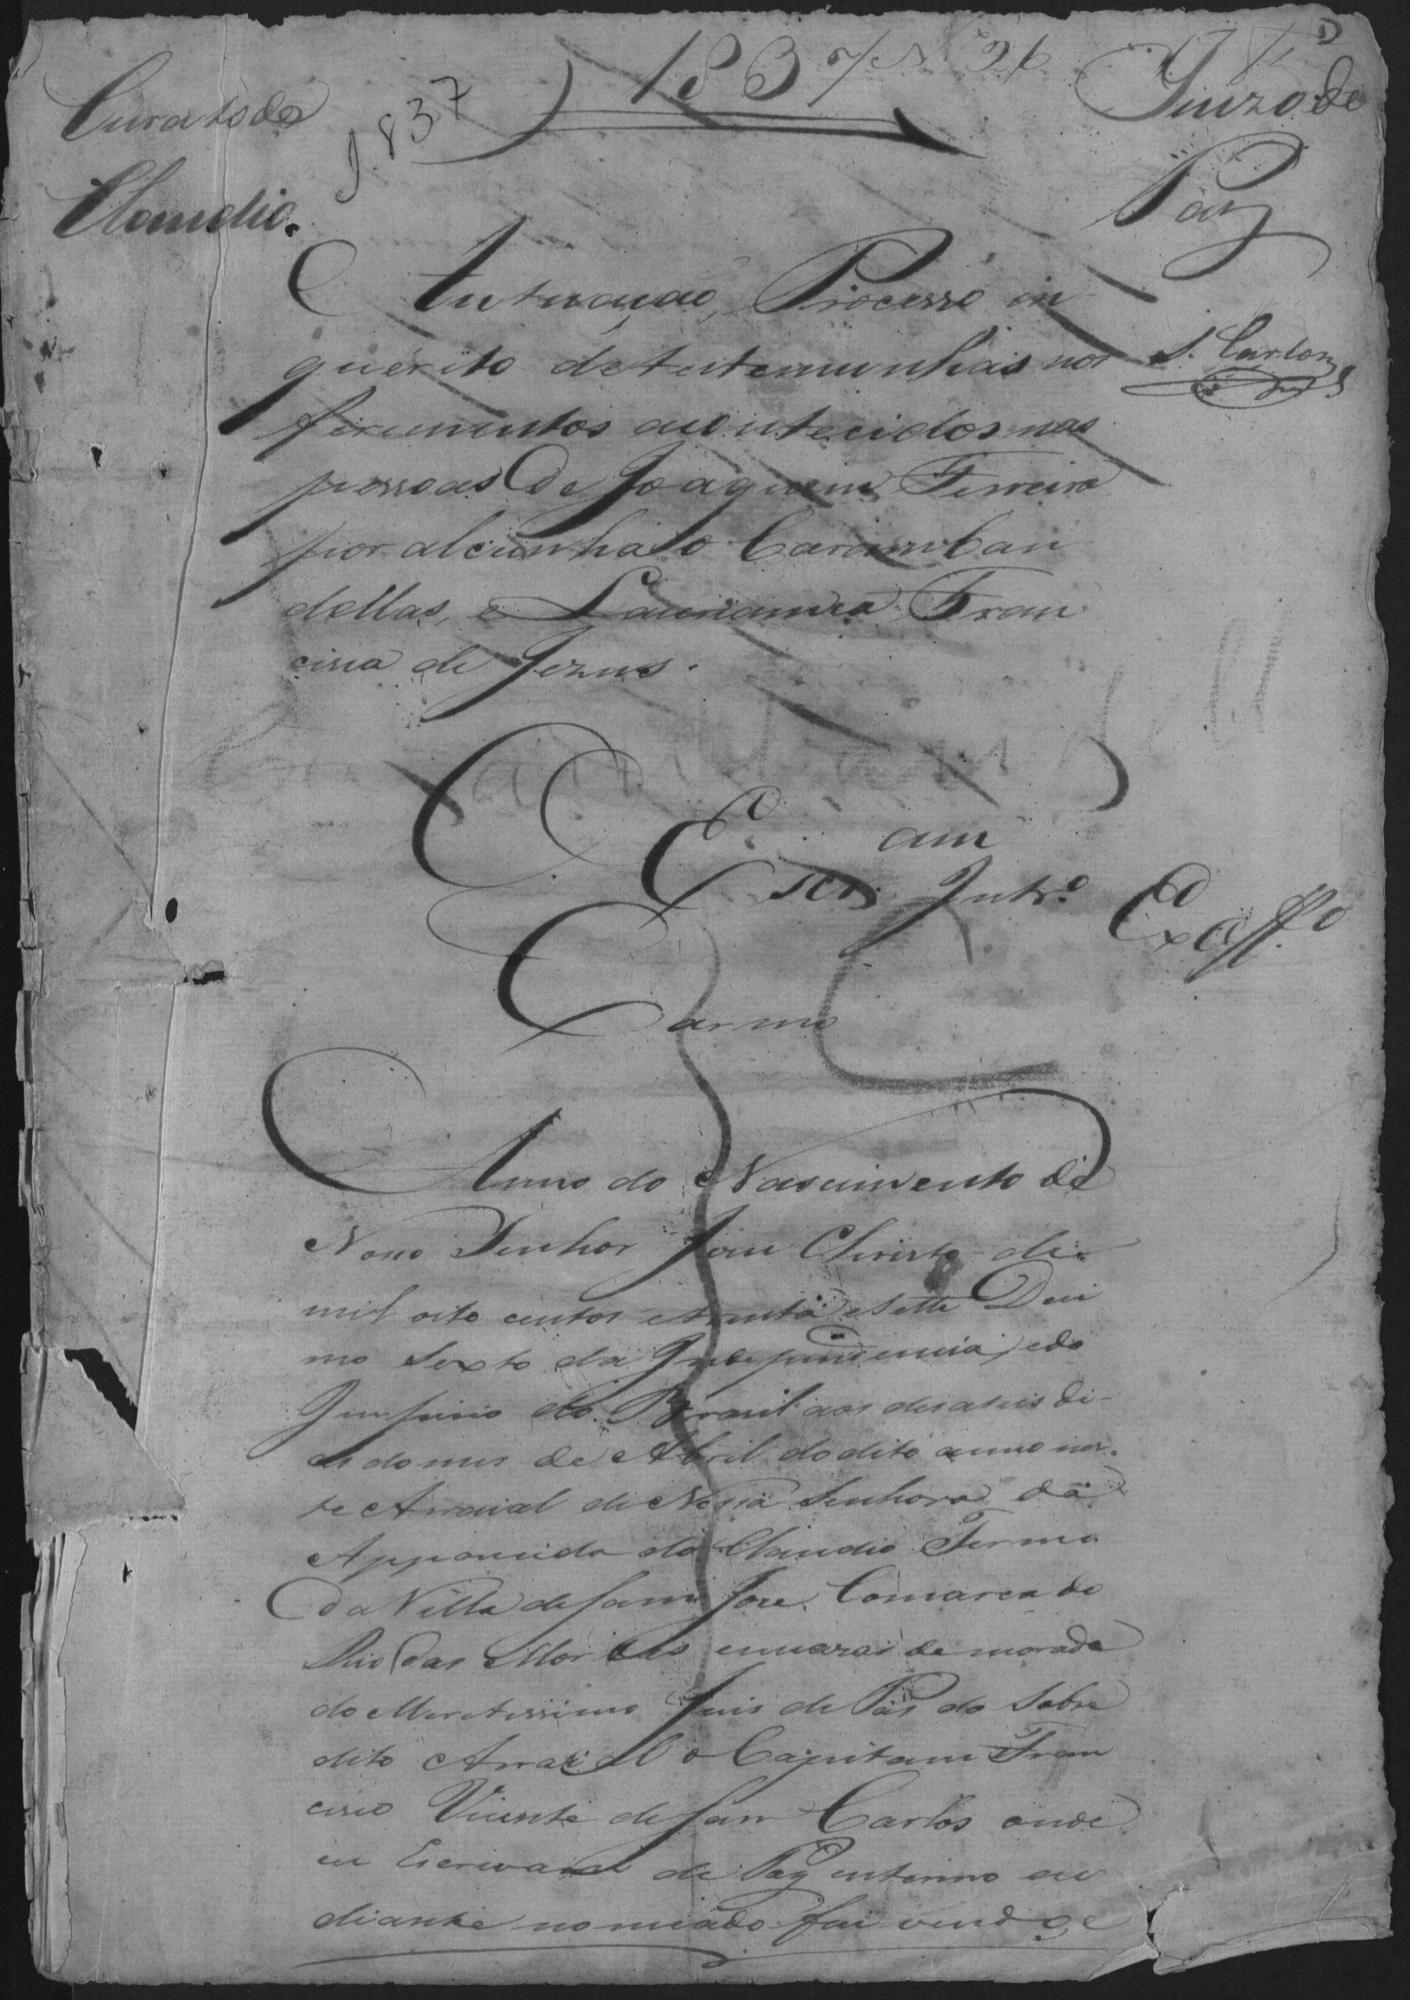 1837 N 26
Curato do
Claudio.
1837
Juizo de
Paz
S. Carlos
Autuação, Processo in
querito de testemunhas nos
ferimentos acontecidos nas
pessoas De Joaquim Ferreira
por alcunha o Carambam
dellas, e Laurianna Fran
cisca de Jezus.
Escram Intro. Ex Offo
Carmo
Anno do Nascimento de
Noso Senhor Jezus Christo de
mil oito centos e trinta e sette Deci
mo Sexto da Independencia, e do
Imperio do Brasil aos desaseis di-
as do mes de Abril do dito anno nes-
te Arraial de Nossa Senhora da
Apparecida do Claudio Termo
da Villa de Sam Joze Comarca do
Rio das Mortes em cazas de morada
do Meretissimo Juis de Pas do Sobre
dito Arraial o Capitam Fran
cisco Vicente de Sam Carlos onde
eu Escrivam de Paz enterino ao
diante nomiado fui vindo, e